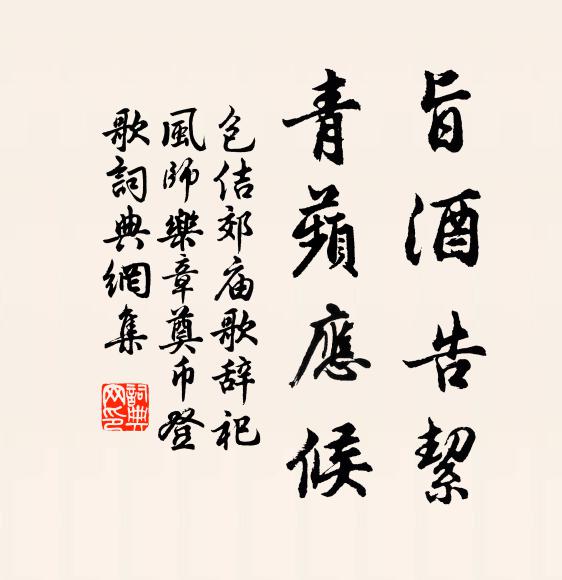 旨酒告絜
青蘋應候
包佶郊庙歌辞祀
風師樂章奠币登
歌詞典網集
詞典网印